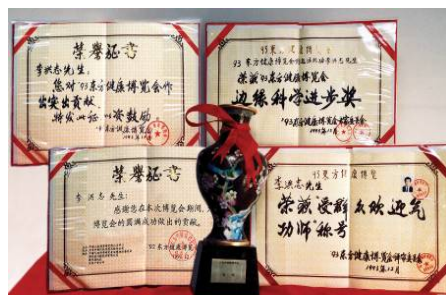 荣誉证书
李洪志先生：
您对'93东方健康博览会作
出突出贡献，
特发此证 以资鼓励
'93东方健康博览会
1993年12月
荣获'93东方健康博览会
边缘科学进步奖
'93东方健康博览会评审委员会
1993年12月
荣誉证书
李洪志先生：
感谢您在本次博览会期间，
博览会的圆满成功做出的贡献。
93东方健康博览会
93东方健康博览
李洪志先生
荣获受群众欢迎气
功师称号
93东方健康博览会评审委员会
1993年12月